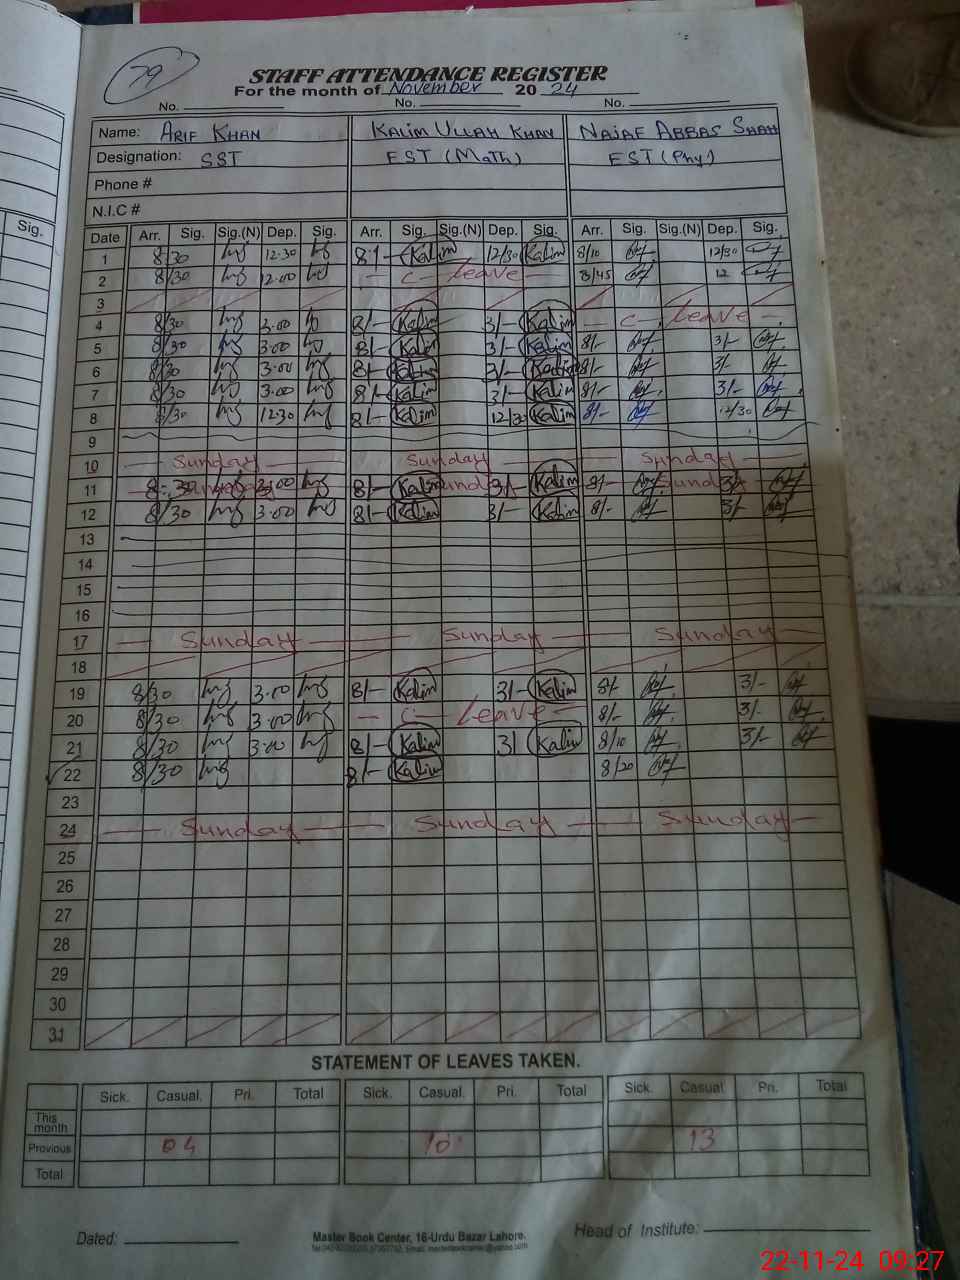 79
STAFF ATTENDANCE REGISTER
For the month of November 20 24
No. No. No.
Name: ARIF KHAN KALIM ULLAH KHAN NAJAF ABBAS SHAH
Designation: SST EST (Math) EST (Phy)
Phone #
N.I.C #
Sig.
Date Arr. Sig. Sig.(N) Dep. Sig. Arr. Sig. Sig.(N) Dep. Sig. Arr. Sig. Sig.(N) Dep. Sig.
1 8/30 12.30 Kalim 12/30 Kalim 8/10 12/30
2 8/30 12.00 C- Leave 8/45 12
3
4 8/30 3.00 8/- Kalim 3/- Kalim C- Leave
5 8/30 3.00 8/- Kalim 3/- Kalim 8/- 3/-
6 8/30 3.00 8/- Kalim 3/- Kalim 8/- 3/-
7 8/30 3.00 8/- Kalim 3/- Kalim 8/- 3/-
8 8/30 12.30 8/- Kalim 12/30 Kalim 8/- 12/30
9
10 Sunday Sunday Sunday
11 8:30 Sunday 3.00 8/- Kalim Sunday 3/- Kalim 8/- Sunday 3/-
12 8/30 3.00 8/- Kalim 3/- Kalim 8/- 3/-
13
14
15
16
17 Sunday Sunday Sunday
18
19 8/30 3.00 8/- Kalim 3/- Kalim 8/- 3/-
20 8/30 3.00 C- Leave 8/- 3/-
21 8/30 3.00 8/- Kalim 3/ Kalim 8/10 3/-
22 8/30 8/- Kalim 8/20
23
24 Sunday Sunday Sunday
25
26
27
28
29
30
31
STATEMENT OF LEAVES TAKEN.
Sick. Casual. Pri. Total Sick. Casual. Pri. Total Sick. Casual Pri. Total
This month
Previous 04 10 13
Total
Dated: Master Book Center, 16-Urdu Bazar Lahore. Head of Institute:
22-11-24 09:27